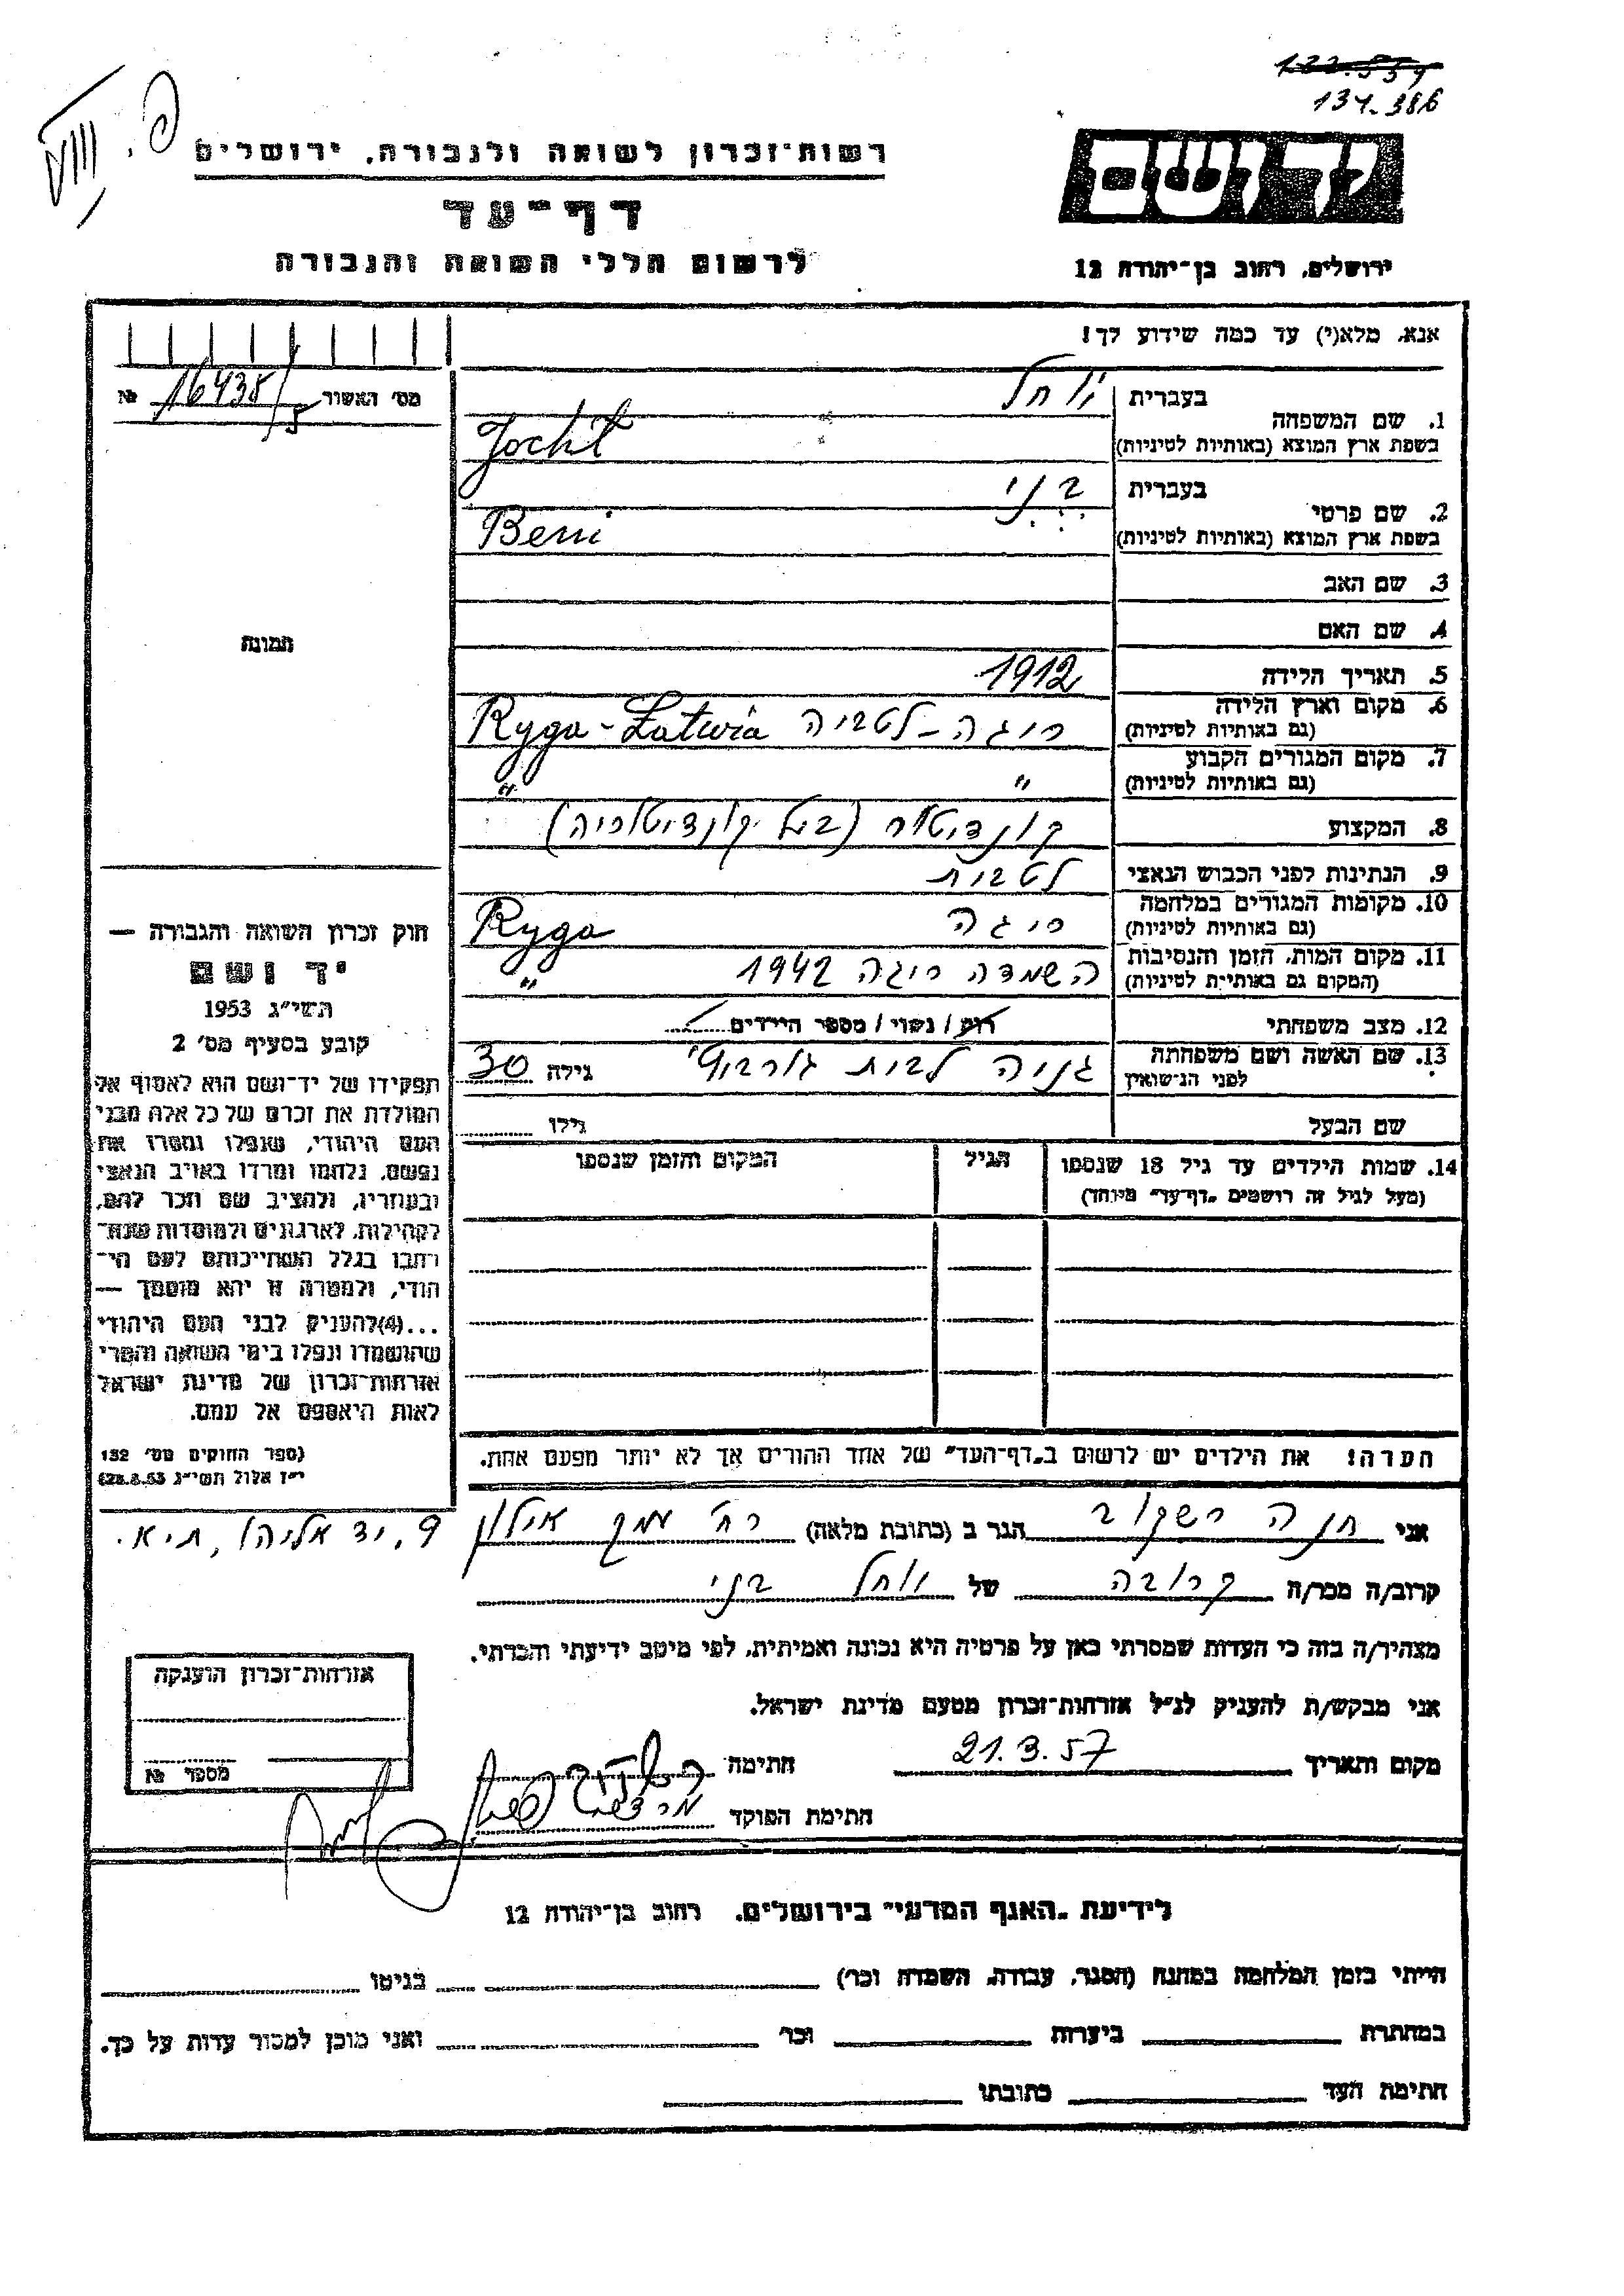 134.386
רשות־זכרון לשואה ולגבורה, ירושלים
דף־עד
לרשום חללי השואה והגבורה
יד ושם
ירושלים, רחוב בן־יהודה 12
אנא, מלא(י) עד כמה שידוע לך!
מס' האשור 16438/5 №
1. שם המשפחה
בעברית
בשפת ארץ המוצא (באותיות לטיניות) Jocht
2. שם פרטי
בעברית בני
בשפת ארץ המוצא (באותיות לטיניות) Beni
3. שם האב
4. שם האם
תמונה
5. תאריך הלידה 1912
6. מקום וארץ הלידה
(גם באותיות לטיניות) ריגה - לטביה Ryga - Latwia
7. מקום המגורים הקבוע
(גם באותיות לטיניות) " "
8. המקצוע קונדיטור (בעל קונדיטוריה)
9. הנתינות לפני הכבוש הנאצי לטבית
10. מקומות המגורים במלחמה
(גם באותיות לטיניות) ריגה Ryga
11. מקום המות, הזמן והנסיבות
(המקום גם באותיות לטיניות) השמדה ריגה 1942 "
12. מצב משפחתי רוק / נשוי / מספר הילדים
13. שם האשה ושם משפחתה
לפני הנישואין גניה לבית גילה 30
שם הבעל גילו
14. שמות הילדים עד גיל 18 שנספו
(מעל לגיל זה רושמים „דף־עד" מיוחד)
הגיל
המקום והזמן שנספו
חוק זכרון השואה והגבורה —
יד ושם
תשי"ג 1953
קובע בסעיף מס' 2
תפקידו של יד־ושם הוא לאסוף אל
המולדת את זכרם של כל אלה מבני
העם היהודי, שנפלו ומסרו את
נפשם, נלחמו ומרדו באויב הנאצי
ובעוזריו, ולהציב שם וזכר להם,
לקהילות, לארגונים ולמוסדות שנח־
רבו בגלל השתייכותם לעם הי־
הודי, ולמטרה זו יהא מוסמך —
...(4)להעניק לבני העם היהודי
שהושמדו ונפלו בימי השואה והמרי
אזרחות־זכרון של מדינת ישראל
לאות היאספם אל עמם.
(ספר החוקים מס' 132
י"ז אלול תשי"ג 28.8.53)
הערה! את הילדים יש לרשום ב„דף־העד" של אחד ההורים אך לא יותר מפעם אחת.
אני חנה רשקוב הגר ב (כתובת מלאה) רח' עמק אילון 9, יד אליהו, ת"א.
קרוב/ה מכר/ה קרובה של בני
מצהיר/ה בזה כי העדות שמסרתי כאן על פרטיה היא נכונה ואמיתית, לפי מיטב ידיעתי והכרתי.
אני מבקש/ת להעניק לנ"ל אזרחות־זכרון מטעם מדינת ישראל.
מקום ותאריך 21.3.57 חתימה
חתימת הפוקד
אזרחות־זכרון הוענקה
מספר №
לידיעת „האגף המדעי" בירושלים, רחוב בן־יהודה 12
הייתי בזמן המלחמה במחנה (הסגר, עבודה, השמדה וכו') בגיטו
במחתרת ביערות וכו' ואני מוכן למסור עדות על כך.
חתימת העד כתובתו